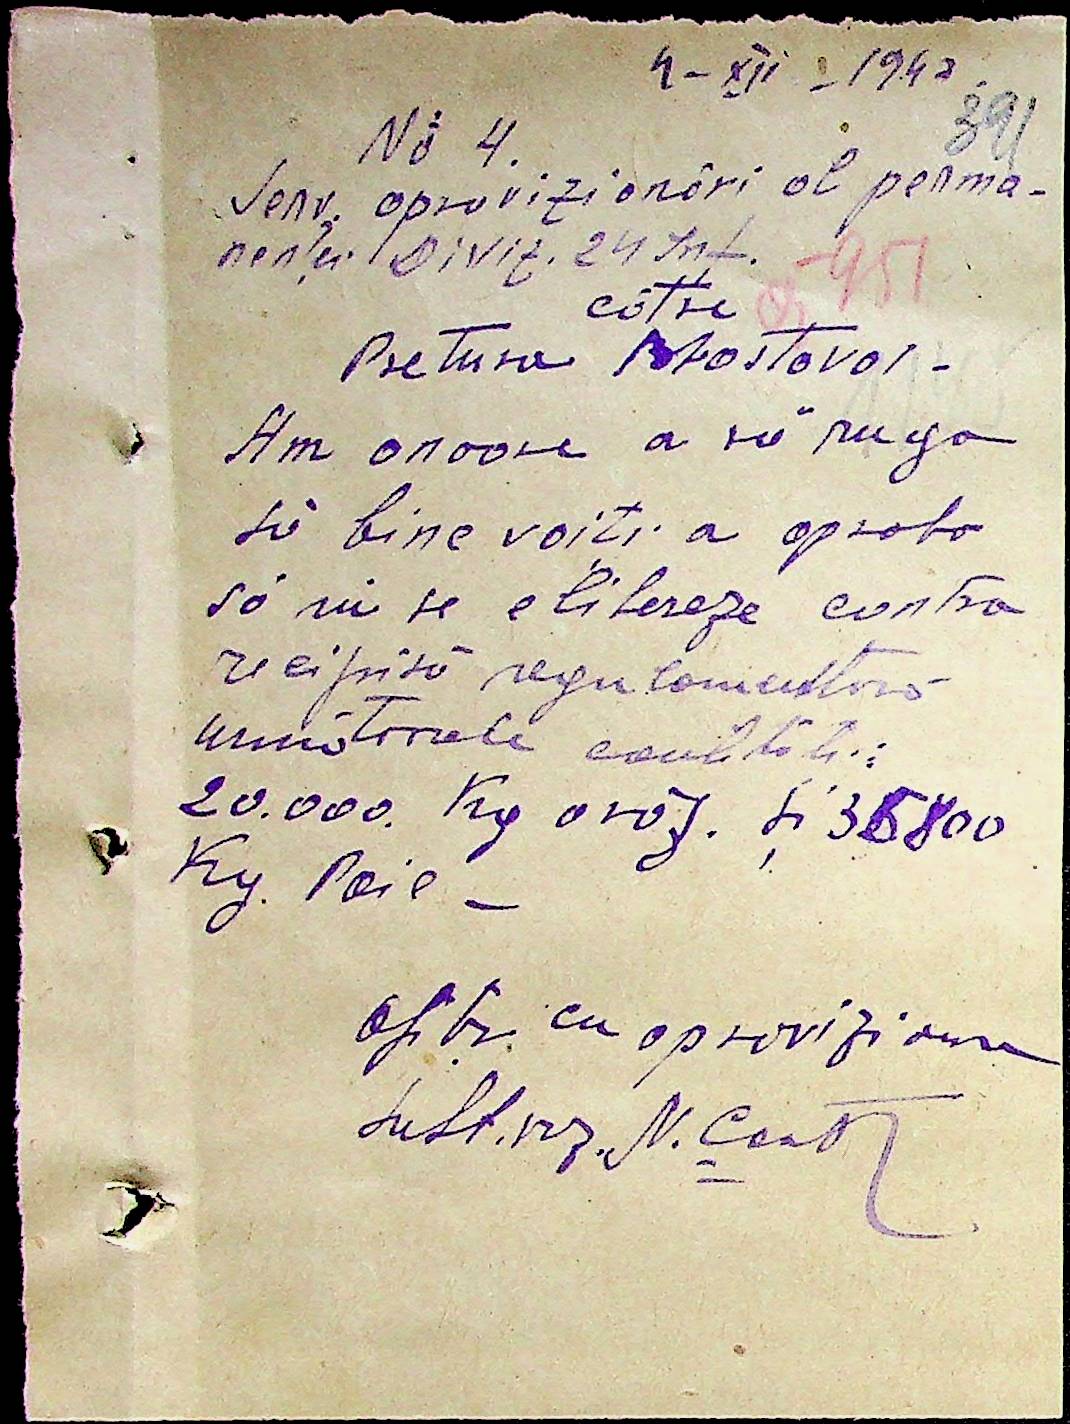 4 - XII - 1942.
391
Nō 4.
Serv. aprovizionări al perma-
nenței Diviz. 24 Inf.
951
către
Pretura Mostovoi -
Am onoare a vă ruga
să bine voiți a aproba
să ni se elibereze contra
recipisă regulamentară
următoarele cantități:
20.000. Kg orăz. și 35800
Kg. Paie -
Ofițer cu aprovizionarea
Sublt. rez. N.